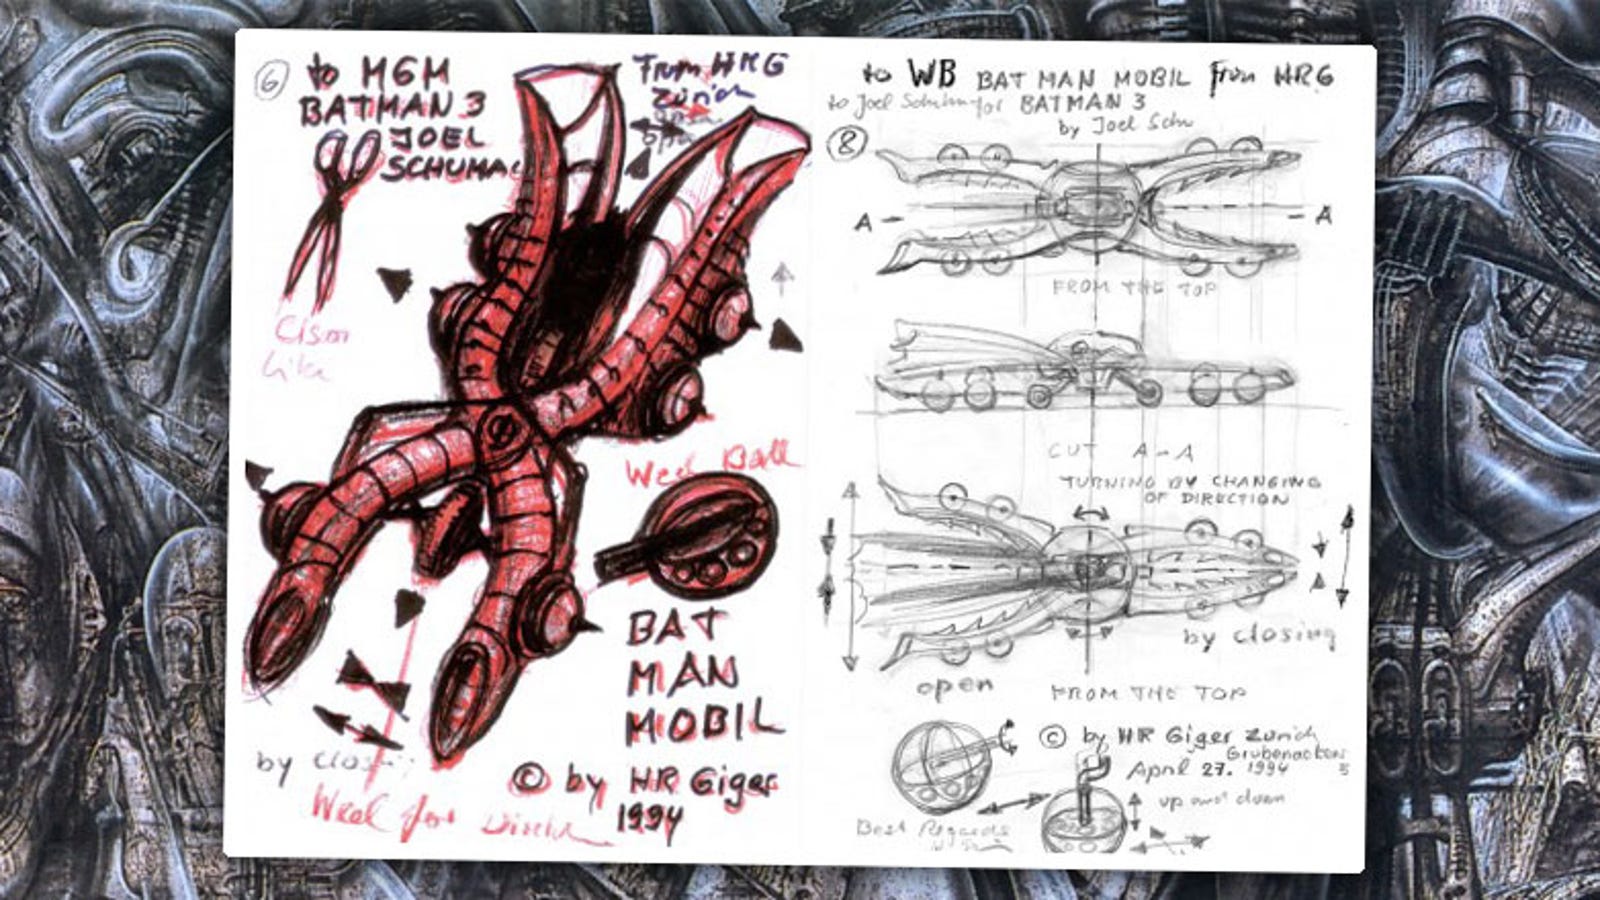 6
to MGM
BATMAN 3
JOEL
SCHUMAC
From HRG
Zürich
Cism
like
Weel Ball
BAT
MAN
MOBIL
by closi
Weel for
© by HR Giger
1994
to WB BAT MAN MOBIL from HRG
to Joel Schum for BATMAN 3
by Joel Schu
8
A A
FROM THE TOP
CUT A-A
TURNING BY CHANGING
OF DIRECTION
by closing
open
FROM THE TOP
© by HR Giger Zürich
April 27. 1994 5
up and down
Best Regards